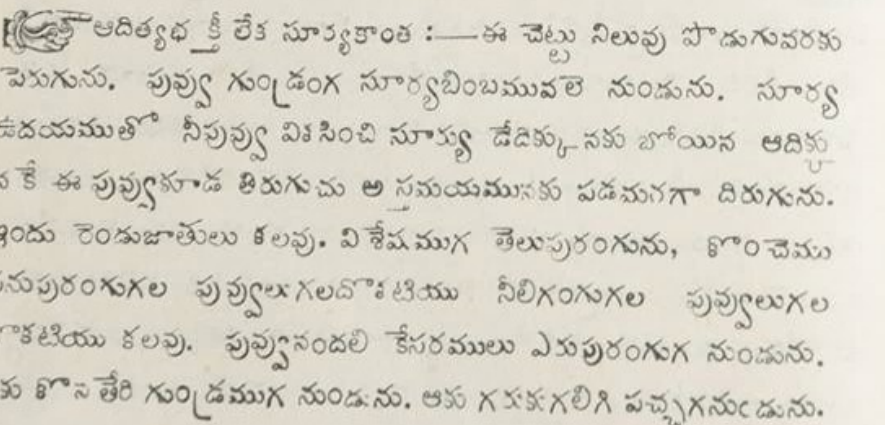 ఆదిత్యభక్తి లేక సూర్యకాంత :—ఈ చెట్టు నిలువు పొడుగువరకు
పెరుగును. పువ్వు గుండ్రంగ సూర్యబింబమువలె నుండును. సూర్య
ఉదయముతో నీపువ్వు వికసించి సూర్యు డేదిక్కునకు బోయిన ఆదిక్కు
న కే ఈ పువ్వుకూడ తిరుగుచు అస్తమయమునకు పడమరగా దిరుగును.
ఇందు రెండుజాతులు కలవు. విశేషముగ తెలుపురంగును, కొంచెము
నుపురంగుగల పువ్వులుగలదొకటియు నీలిరంగుగల పువ్వులుగల
కటియు కలవు. పువ్వునందలి కేసరములు ఎరుపురంగుగ నుండును.
కు కొనతేరి గుండ్రముగ నుండును. ఆకు గరుకుగలిగి పచ్చగనుండును.